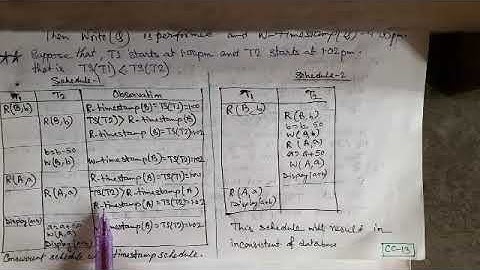 Then Write(B) is performed and W-timestamp(B)=
** Suppose that, T1 starts at 1:00pm and T2 starts at 1:02pm.
that is TS(T1) < TS(T2)
Schedule-1
T2 Observation
R(B,b) R-timestamp(B)=TS(T1)=1:00
R(B,b) TS(T2)>R-timestamp(B)
R-timestamp(B)=TS(T2)=1:02
b=b-50
W(B,b) W-timestamp(B)=TS(T2)=1:02
R(A,a) R-timestamp(A)=TS(T1)=1:00
R(A,a) TS(T2)>R-timestamp(A)
R-timestamp(A)=TS(T2)=1:02
Display(a+b)
W(A,a) W-timestamp(A)=TS(T2)=1:02
Display(a+b)
Concurrent schedule timestamp schedule.
Schedule-2
T1 T2
R(B,b)
R(B,b)
b=b-50
W(B,b)
R(A,a)
a=a+50
W(A,a)
Display(a+b)
R(A,a)
Display(a+b)
This schedule will result in
inconsistent of database
CC-13